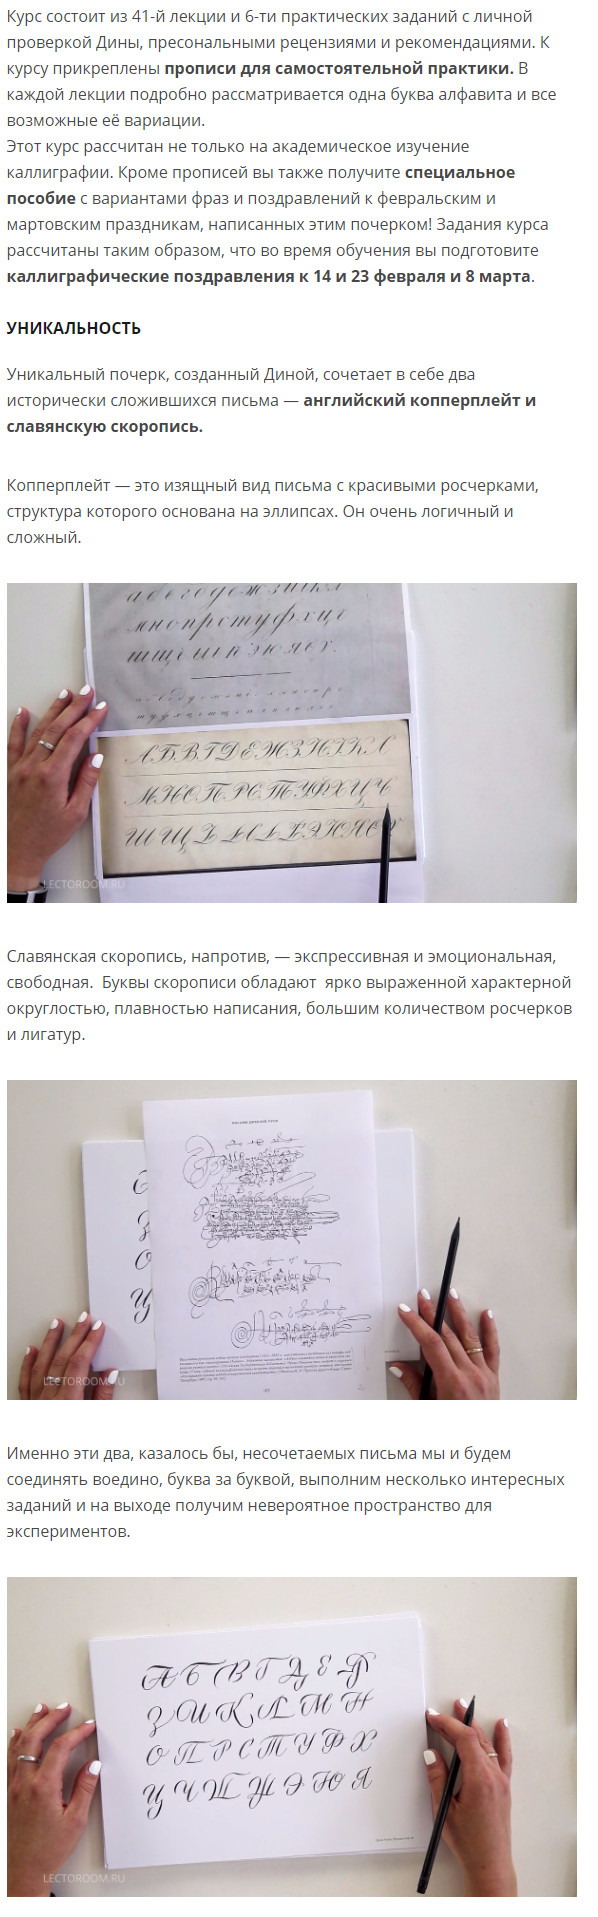 Курс состоит из 41-й лекции и 6-ти практических заданий с личной
проверкой Дины, пресональными рецензиями и рекомендациями. К
курсу прикреплены прописи для самостоятельной практики. В
каждой лекции подробно рассматривается одна буква алфавита и все
возможные её вариации.
Этот курс рассчитан не только на академическое изучение
каллиграфии. Кроме прописей вы также получите специальное
пособие с вариантами фраз и поздравлений к февральским и
мартовским праздникам, написанных этим почерком! Задания курса
рассчитаны таким образом, что во время обучения вы подготовите
каллиграфические поздравления к 14 и 23 февраля и 8 марта.
УНИКАЛЬНОСТЬ
Уникальный почерк, созданный Диной, сочетает в себе два
исторически сложившихся письма — английский копперплейт и
славянскую скоропись.
Копперплейт — это изящный вид письма с красивыми росчерками,
структура которого основана на эллипсах. Он очень логичный и
сложный.
мнопрстуфхцг
АБВГДЕЖЗИІКЛ
МНОПРСТУФХЦЧ
LECTOROOM.RU
Славянская скоропись, напротив, — экспрессивная и эмоциональная,
свободная. Буквы скорописи обладают ярко выраженной характерной
округлостью, плавностью написания, большим количеством росчерков
и лигатур.
LECTOROOM.RU
Именно эти два, казалось бы, несочетаемых письма мы и будем
соединять воедино, буква за буквой, выполним несколько интересных
заданий и на выходе получим невероятное пространство для
экспериментов.
А Б В Г Д Е Ж
З И К Л М Н
О П Р С Т У Ф Х
Ц Ч Ш Щ Э Ю Я
LECTOROOM.RU